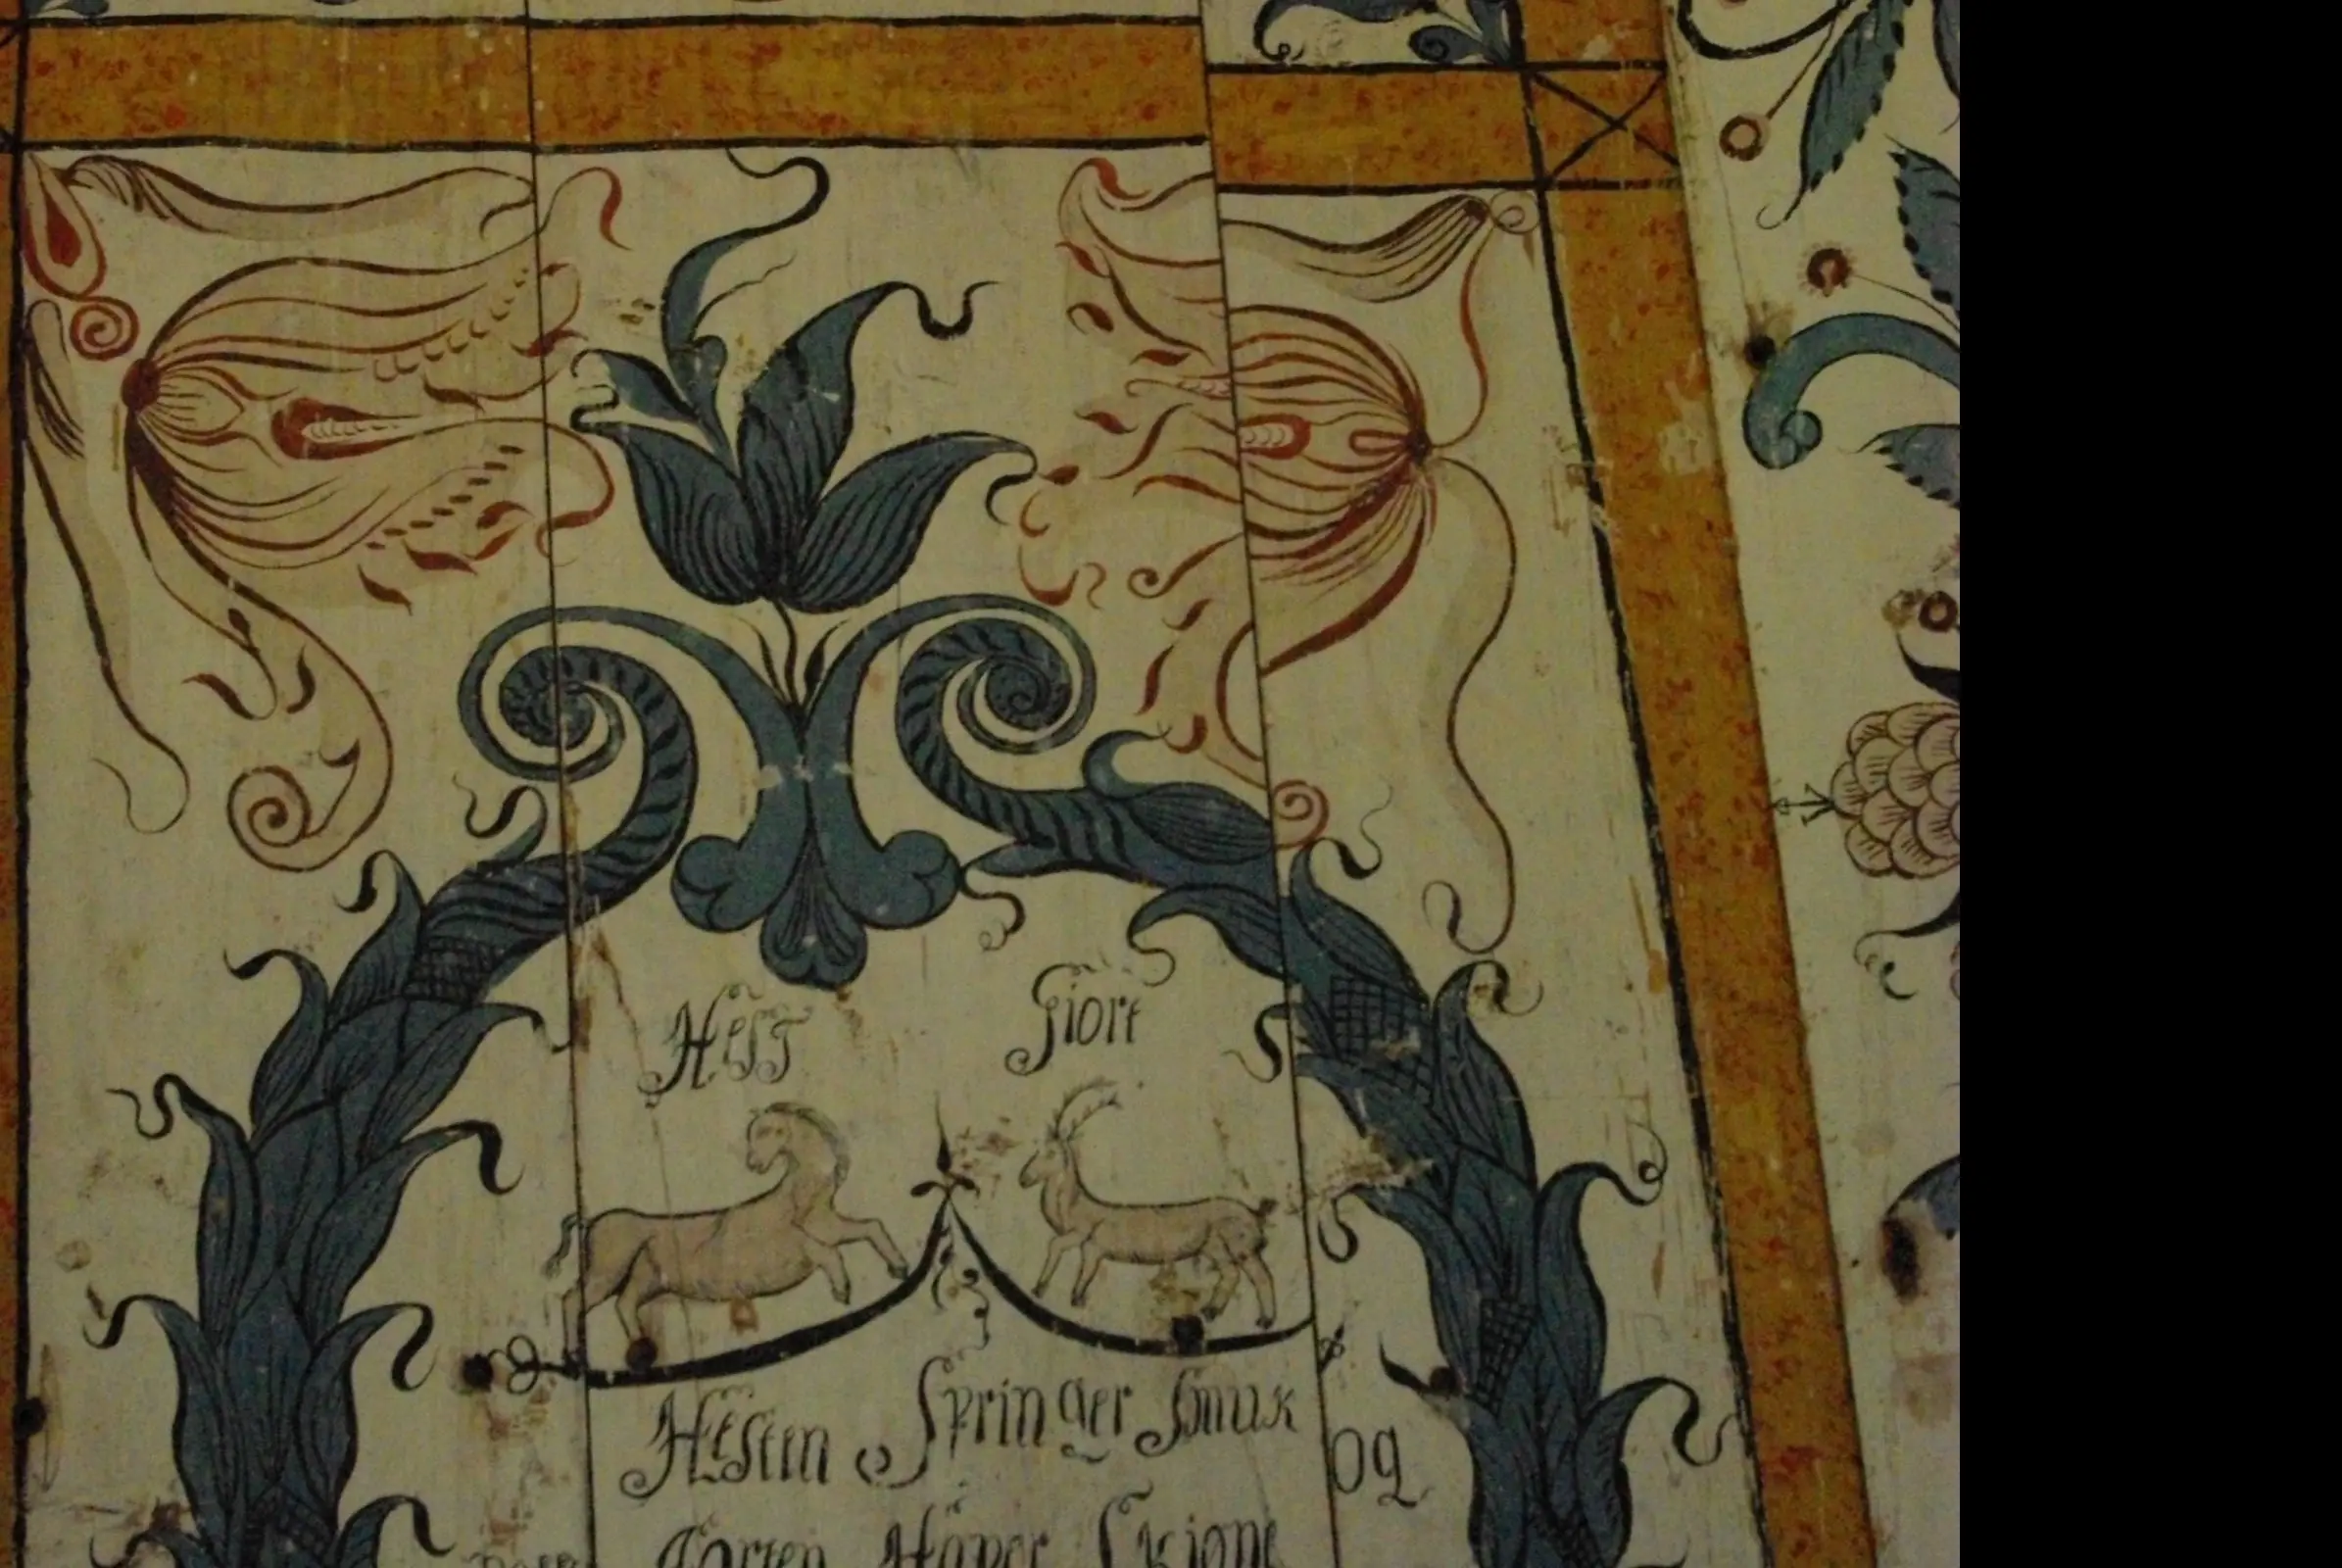 Hest Giort
Hesten Springer smuk og
Giorten Høper Skiønt